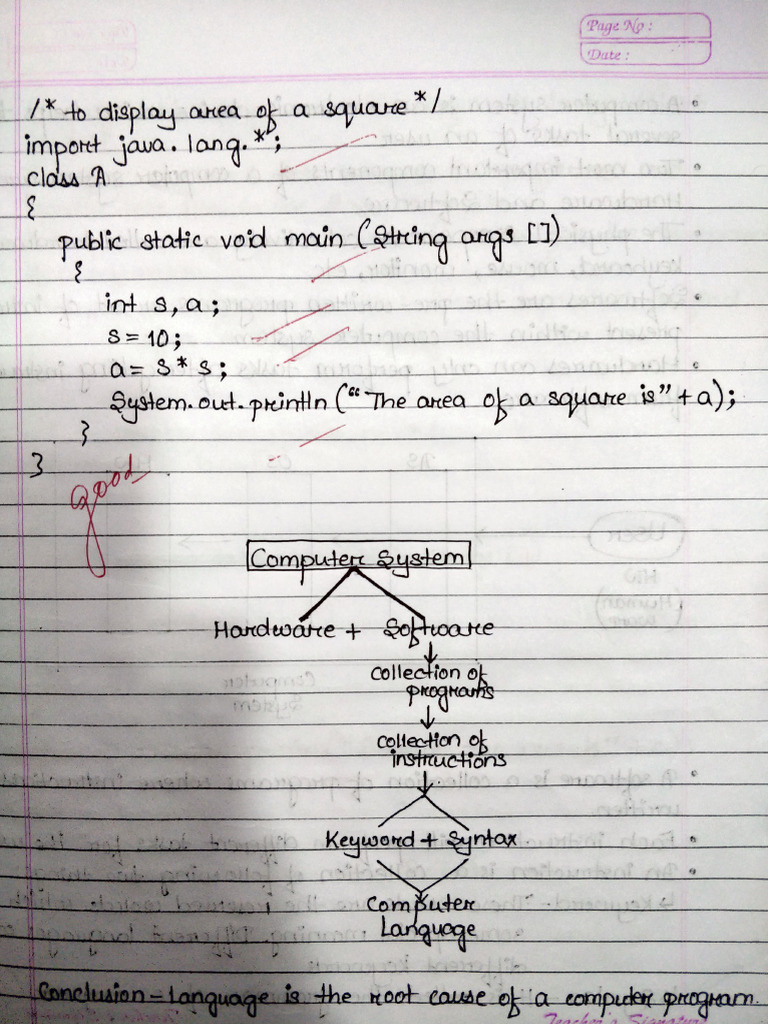 Page No :
Date :
/* to display area of a square */
import java.lang.*;
class A
{
public static void main (String args [])
{
int s, a;
s = 10;
a = s * s;
System.out.println ("The area of a square is" + a);
}
}
good
Computer System
Hardware + Software
collection of
programs
collection of
instructions
Keyword + Syntax
Computer
Language
Conclusion - Language is the root cause of a computer program.
Teacher's Signature